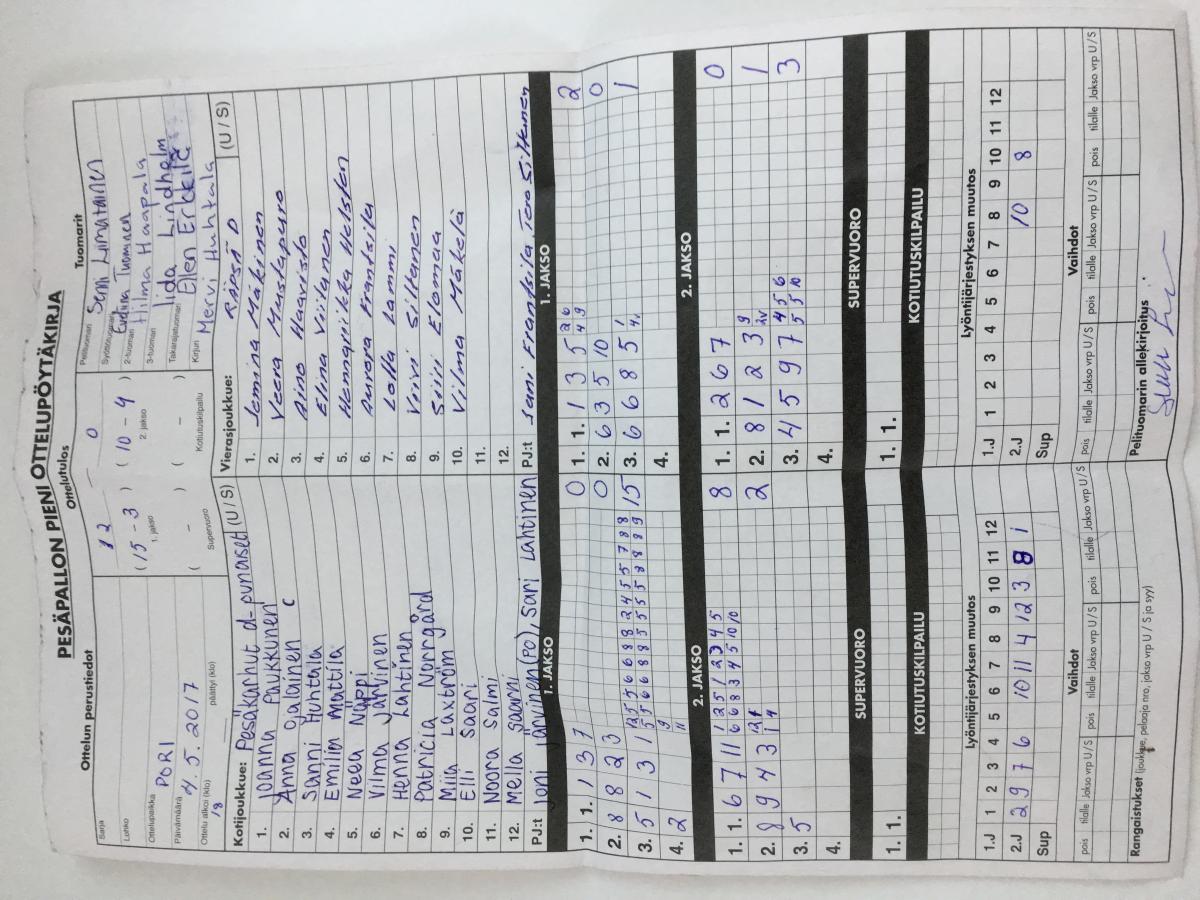 PESÄPALLON PIENI OTTELUPÖYTÄKIRJA
Ottelun perustiedot
Ottelutulos
Tuomarit
Sarja
Lohko
Ottelupaikka PORI
Päivämäärä 4.5.2017
Ottelu alkoi (klo) 18 päättyi (klo)
12 – 0
(15 - 3) (10 - 4)
1. jakso 2. jakso
( - ) ( - )
Supervuoro Kotiutuskilpailu
Pelituomari Senni Limatainen
Syöttötuomari Eveliina Tuominen
2-tuomari Hilma Haapala
3-tuomari Iida Lindholm
Takarajatuomari Ellen Erkkilä
Kirjuri Mervi Huhtala
Kotijoukkue: Pesäkarhut d-punaiset (U / S)
1. Joanna Paukkunen
2. Anna Ojalainen C
3. Sanni Huhtala
4. Emilia Mattila
5. Neea Näppi
6. Vilma Järvinen
7. Henna Lahtinen
8. Patricia Norrgård
9. Miila Laxtröm
10. Elli Saari
11. Noora Salmi
12. Mella Saarni
PJ:t Joni Järvinen (PO), Sari Lahtinen
Vierasjoukkue: RäPsä D (U / S)
1. Jemina Mäkinen
2. Veera Mustapuro
3. Aino Haavisto
4. Elina Viitanen
5. Hennariikka Helsten
6. Aurora Frantsila
7. Lotta Lammi
8. Viivi Siltanen
9. Siiri Elomaa
10. Vilma Mäkelä
11.
12.
PJ:t Jani Frantsila Tero Siltanen
1. JAKSO
1. JAKSO
1. 1. 1 3 7 0
2. 8 8 2 3 0
3. 5 1 3 1 15
4. 2
1. 1. 1 3 5 2
2. 6 3 5 10 0
3. 6 6 8 5 1
4.
2. JAKSO
2. JAKSO
1. 1. 6 7 11 8
2. 8 9 4 3 2
3. 5
4.
1. 1. 2 6 7 0
2. 8 1 2 3 1
3. 4 5 9 7 3
4.
SUPERVUORO
SUPERVUORO
1. 1.
1. 1.
KOTIUTUSKILPAILU
KOTIUTUSKILPAILU
Lyöntijärjestyksen muutos
Lyöntijärjestyksen muutos
1.J 1 2 3 4 5 6 7 8 9 10 11 12
2.J 2 9 7 6 10 11 4 12 3 8 1
Sup
1.J 1 2 3 4 5 6 7 8 9 10 11 12
2.J 10 8
Sup
Vaihdot
Vaihdot
pois tilalle Jakso vrp U / S pois tilalle Jakso vrp U / S pois tilalle Jakso vrp U / S
pois tilalle Jakso vrp U / S pois tilalle Jakso vrp U / S pois tilalle Jakso vrp U / S
Rangaistukset (joukkue, pelaaja nro, jakso vrp U / S ja syy)
Pelituomarin allekirjoitus